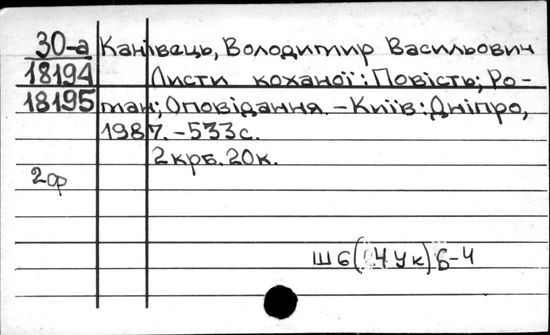 30-а Канівець, Володимир Васильович
18194 Листи коханої: Повість; Ро-
18195 ман; Оповідання. - Київ: Дніпро,
1987. - 533с.
2крб. 20к.
2ф
Ш6(4Ук)6-4